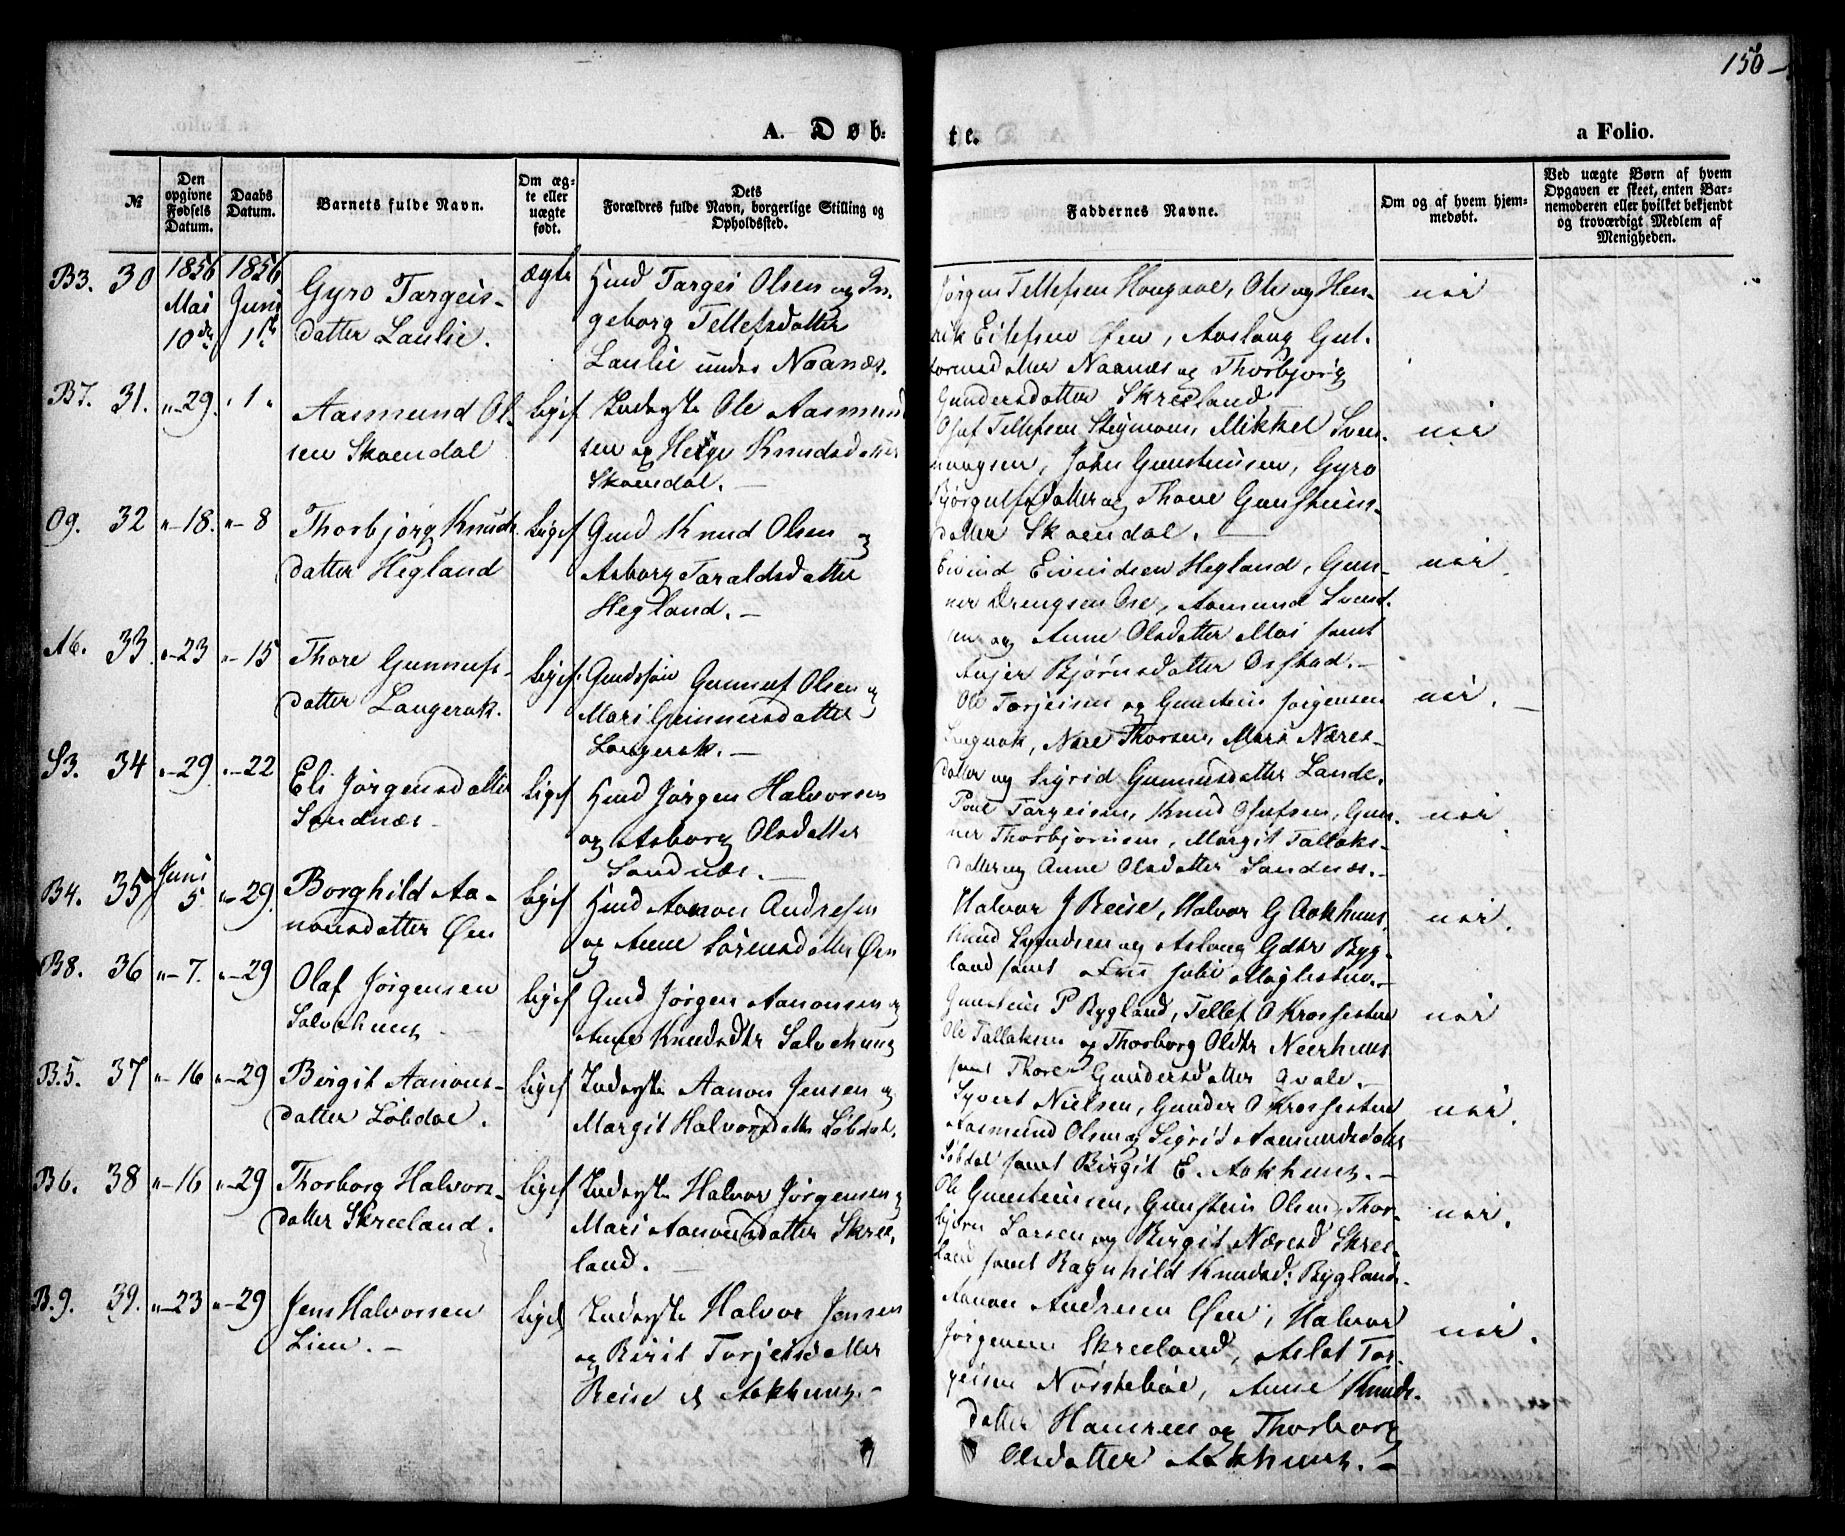 150
A. Døb-
te.
a Folio.
№
Den opgivne Fødsels Datum.
Daabs Datum.
Barnets fulde Navn.
Om ægte eller uægte født.
Dets Forældres fulde Navn, borgerlige Stilling og Opholdssted.
Faddernes Navne.
Om og af hvem hjemmedøbt.
Ved uægte Børn af hvem Opgaven er skeet, enten Barnemoderen eller hvilket bekjendt og troværdigt Medlem af Menigheden.
B3. 30 1856 Mai 10de 1856 Juni 1ste
Gyro Targeis-
datter Laulie.
ægte
Targei Olsen og In-
geborg Tellefsdatter
Laulie under Naanæs.
Jørgen Tellefsen Haugaae, Ole og Hen-
rik Eilefsen Øen, Aaslaug Gut-
tormsdatter Naanæs og Thorbjørg
Gundersdatter Skreeland
nei
B7. 31. "-29. "1"
Aasmund Ol-
sen Skomedal
Ligesf
Inderste Ole Aasmund
sen og Helge Knudsdatter
Skomedal. —
Olaf Tellefsen Mikkel Sven-
ungsen, John Gunsteinsen, Gyro
Bjørgulfsdatter og Thone Gunsteins-
datter Skomedal. —
nei
Og. 32 "-18. "-8
Thorbjørg Knuds-
datter Hegland
Ligesf
Gmd Knud Olsen og
Asborg Taraldsdatter
Hegland. —
Eivind Eivindsen Hegland, Gun-
ner Drengsen Ose, Aamund Svend-
sen og Anne Olsdatter Moi samt
Bjørnsdatter Ostad. —
nei.
A6. 33. "-23 "-15
Thore Gunnufs-
datter Langerak.
Ligesf.
Gmdssøn Gunnuf Olsen og
Mari Gunnersdatter
Langerak. —
Ole Torjeisen og Gunstein Jørgensen
Langerak, Nære Thorsen, Mari Næres-
datter og Sigrid Gunnersdatter Lande.
nei. —
S3. 34 "-29. "-22
Eli Jørgensdatter
Sandnæs
Ligesf
Jørgen Halvorsen
og Asborg Olsdatter
Sandnæs. —
Poul Targeisen, Knud Olufsen, Gun-
ner Thorbjørnsen, Margit Tallaks-
datter og Anne Olsdatter Sandnæs. —
nei.
B4. 35 Juni 5 "-29.
Borghild Aa-
nonsdatter Øen
Ligesf
Aanon Andresen
og Anne Sørensdatter Øen
Halvor J Reise, Halvor G Aakhuus,
Knud Syvendsen og Aslaug Gdtr Byg-
land samt
nei.
B8. 36 "-7. "-29
Olaf Jørgensen
Salvehuus
Ligesf
Gmd Jørgen Aanonsen og
Anne Knudsdtr Salvehuus
Gunstein P Bygland, Tellef O Krossestue
Ole Tallaksen og Thorborg Olsdtr Neerhuus
samt Thore Gundersdatter Qvale. —
nei
B.5. 37 "-16 "-29
Birgit Aanons-
datter Løbdal.
Ligesf
Inderste Aanon Jensen og
Margit Halvorsdatter Løbdal.
Syvert Nielsen, Gunder O Krossestue
Aasmund Olsen og Sigrid Aamundsdatter
Løbdal samt Birgit E. Aakhuus. —
nei.
B6. 38 "-16 "-29
Thorborg Halvors-
datter Skreeland.
Ligesf
Inderste Halvor Jørgensen og
Mari Aanonsdatter Skree-
land. —
Ole Gunsteinsen, Gunstein Olsen, Thor-
bjørn Larsen og Birgit Næresd Skree-
land samt Ragnhild Knudsd: Bygland.
nei.
B.9. 39. "-23 "-29
Jens Halvorsen
Lien. —
Ligesf
Inderste Halvor Jensen
og Birit Torjeisdatter
Reise & Aakhuus. —
Aanon Andresen Øen, Halvor
Jørgensen Skreeland, Aslat Tor-
geisen Nørstebøe, Anne Knuds-
datter Hamren og Thorborg
Olsdatter Aakhuus. —
nei.